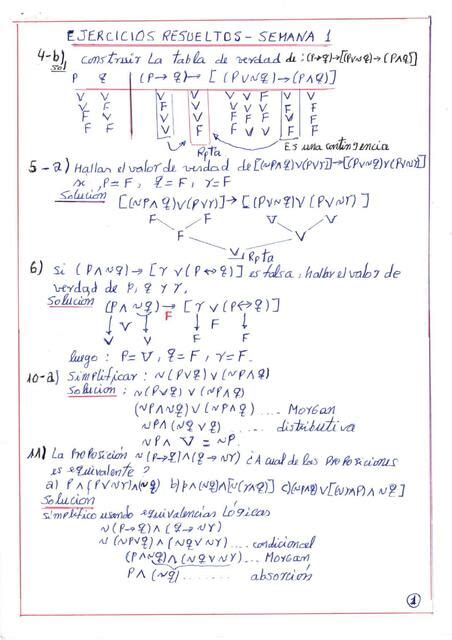 EJERCICIOS RESUELTOS - SEMANA 1
4-b) Construir La tabla de verdad de: (P→q)→[(PV~q)→(P∧q)]
Sol
P q (P→q)→[(PV~q)→(P∧q)]
Rpta
Es una contingencia
5-a) Hallar el valor de verdad de [(~P∧q)V(PVr)]→[(PV~q)V(PV~r)]
si, P=F, q=F, r=F
Solución [(~P∧q)V(PVr)]→[(PV~q)V(PV~r)]
F F V V
F V
V Rpta
6) Si (P∧~q)→[rV(P↔q)] es falsa, hallar el valor de
verdad de P, q y r,
Solución (P∧~q)→[rV(P↔q)]
F
V V F F
V F F F
luego: P=V, q=F, r=F.
10-a) Simplificar: ~(PVq)V(~P∧q)
Solución: ~(PVq)V(~P∧q)
(~P∧~q)V(~P∧q) .... Morgan
~P∧(~qVq) ..... distributiva
~P∧V = ~P.
11) La Proposición ~(P→q)∧(q→~r) ¿A cual de las proposiciones
es equivalente?
a) P∧(PV~r)∧(~q) b) p∧(~q)∧[~(r∧q)] c) (~P∧q)V[(~r∧P)∧~q]
Solución
simplifico usando equivalencias lógicas
~(P→q)∧(q→~r)
~(~PVq)∧(~qV~r) .... condicional
(P∧~q)∧(~qV~r) .... Morgan
P∧(~q) ........ absorción
1